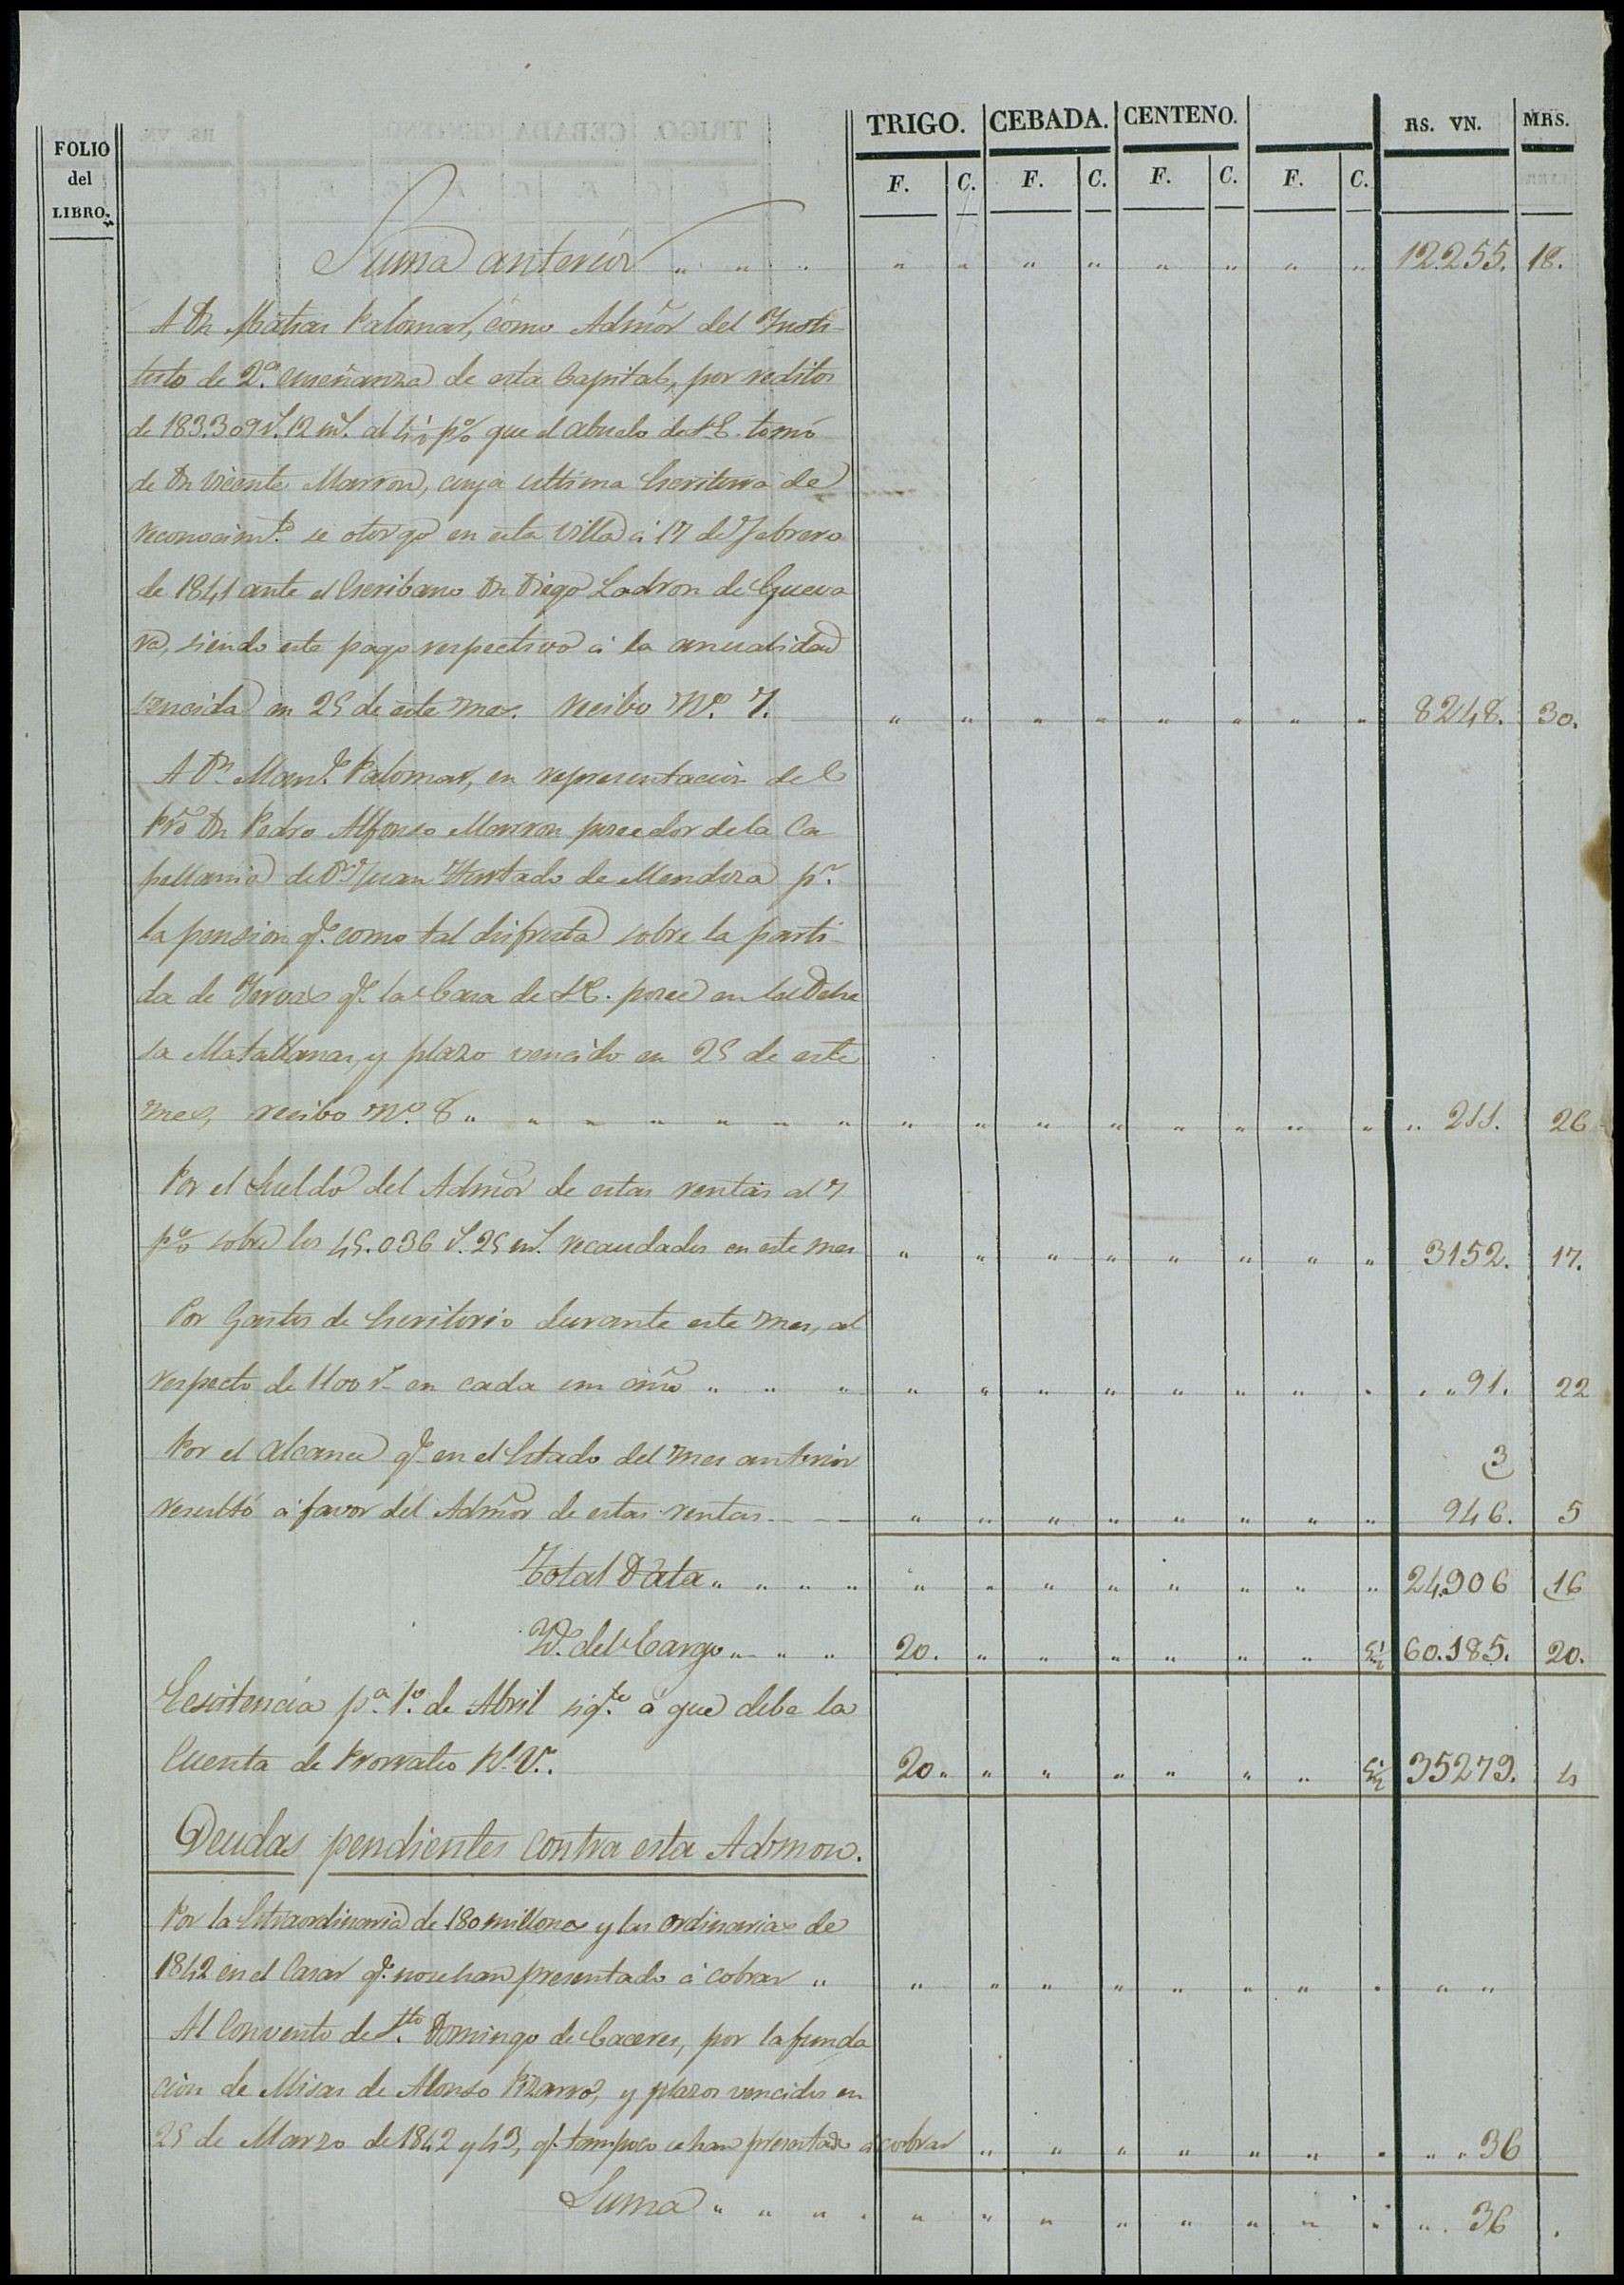 FOLIO del LIBRO.
TRIGO. CEBADA. CENTENO. RS. VN. MRS.
F. C. F. C. F. C. F. C.
Suma anterior " " " " " " " " " " " 12.255. 18.
A Dn Matias Palomar, como Admōr del Insti-
tuto de 2ª enseñanza de esta Capital, por reditos
de 183.309 r.s 12 m.s al 4½ p% que el abuelo de S.E. tomó
de Dn Vicente Marron, cuya ultima Escritura de
reconocim.to se otorgó en esta Villa á 17 de Febrero
de 1841 ante el Escribano Dn Diego Ladron de Gueva
ra, siendo este pago respectivo á la anualidad
vencida en 25 de este mes. Recibo Nº. 7. " " " " " " " " 8248. 30.
A Dn Man.l Palomar, en representacion del
Prō Dn Pedro Alfonso Marron poseedor de la Ca
pellania de Dn Juan Hurtado de Mendoza p.r
la pension q.e como tal disfruta sobre la parti-
da de Yervas q.e la Casa de S.E. posee en la Dehe
sa Matallanas, y plazo vencido en 25 de este
mes, recibo Nº. 8 " " " " " " " " " " " " " " " " 211. 26
Por el Sueldo del Admōr de estas rentas al 7
p% sobre los 45.036 r.s 25 m.s recaudados en este mes " " " " " " " " 3152. 17.
Por Gastos de Escritorio durante este mes, al
respecto de 1100 r.s en cada un año " " " " " " " " " " " " " 91. 22
Por el alcance q.e en el Estado del mes anterior 3
resultó á favor del Admōr de estas rentas - - - " " " " " " " " 946. 5
Total Data " " " " " " " " " " " " 24.906 16
Yd. del Cargo " " " 20. " " " " " " 5½ 60.185. 20.
Ecsistencia p.a 1º. de Abril sig.te á que debe la
Cuenta de Prorrateo R.V.. 20. " " " " " " 5½ 35279. 4
Deudas pendientes contra esta Admon.
Por la Extraordinaria de 180 millones y las ordinarias de
1842 en el Casar q.e no se han presentado á cobrar " " " " " " " " " " "
Al Convento de S.to Domingo de Caceres, por la funda
cion de Misas de Alonso Pizarro, y plazos vencidos en
25 de Marzo de 1842 y 43, q.e tampoco se han presentado á cobrar " " " " " " " " " 36
Suma " " " " " " " " " " " " " " 36